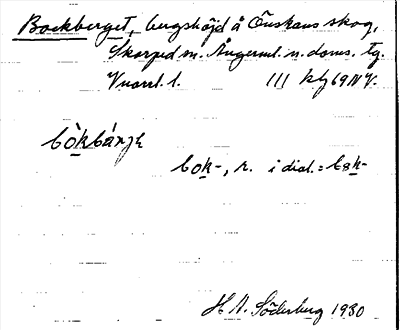 Bockberget, bergshöjd å Önskans skog,
Skorped sn. Ångerml. n. doms. tg.
Vuorrl. 1. III klg 69 IV V.
bòkbárjɛ
bok-, r. i dial. = bok-
H N. Söderberg 1930